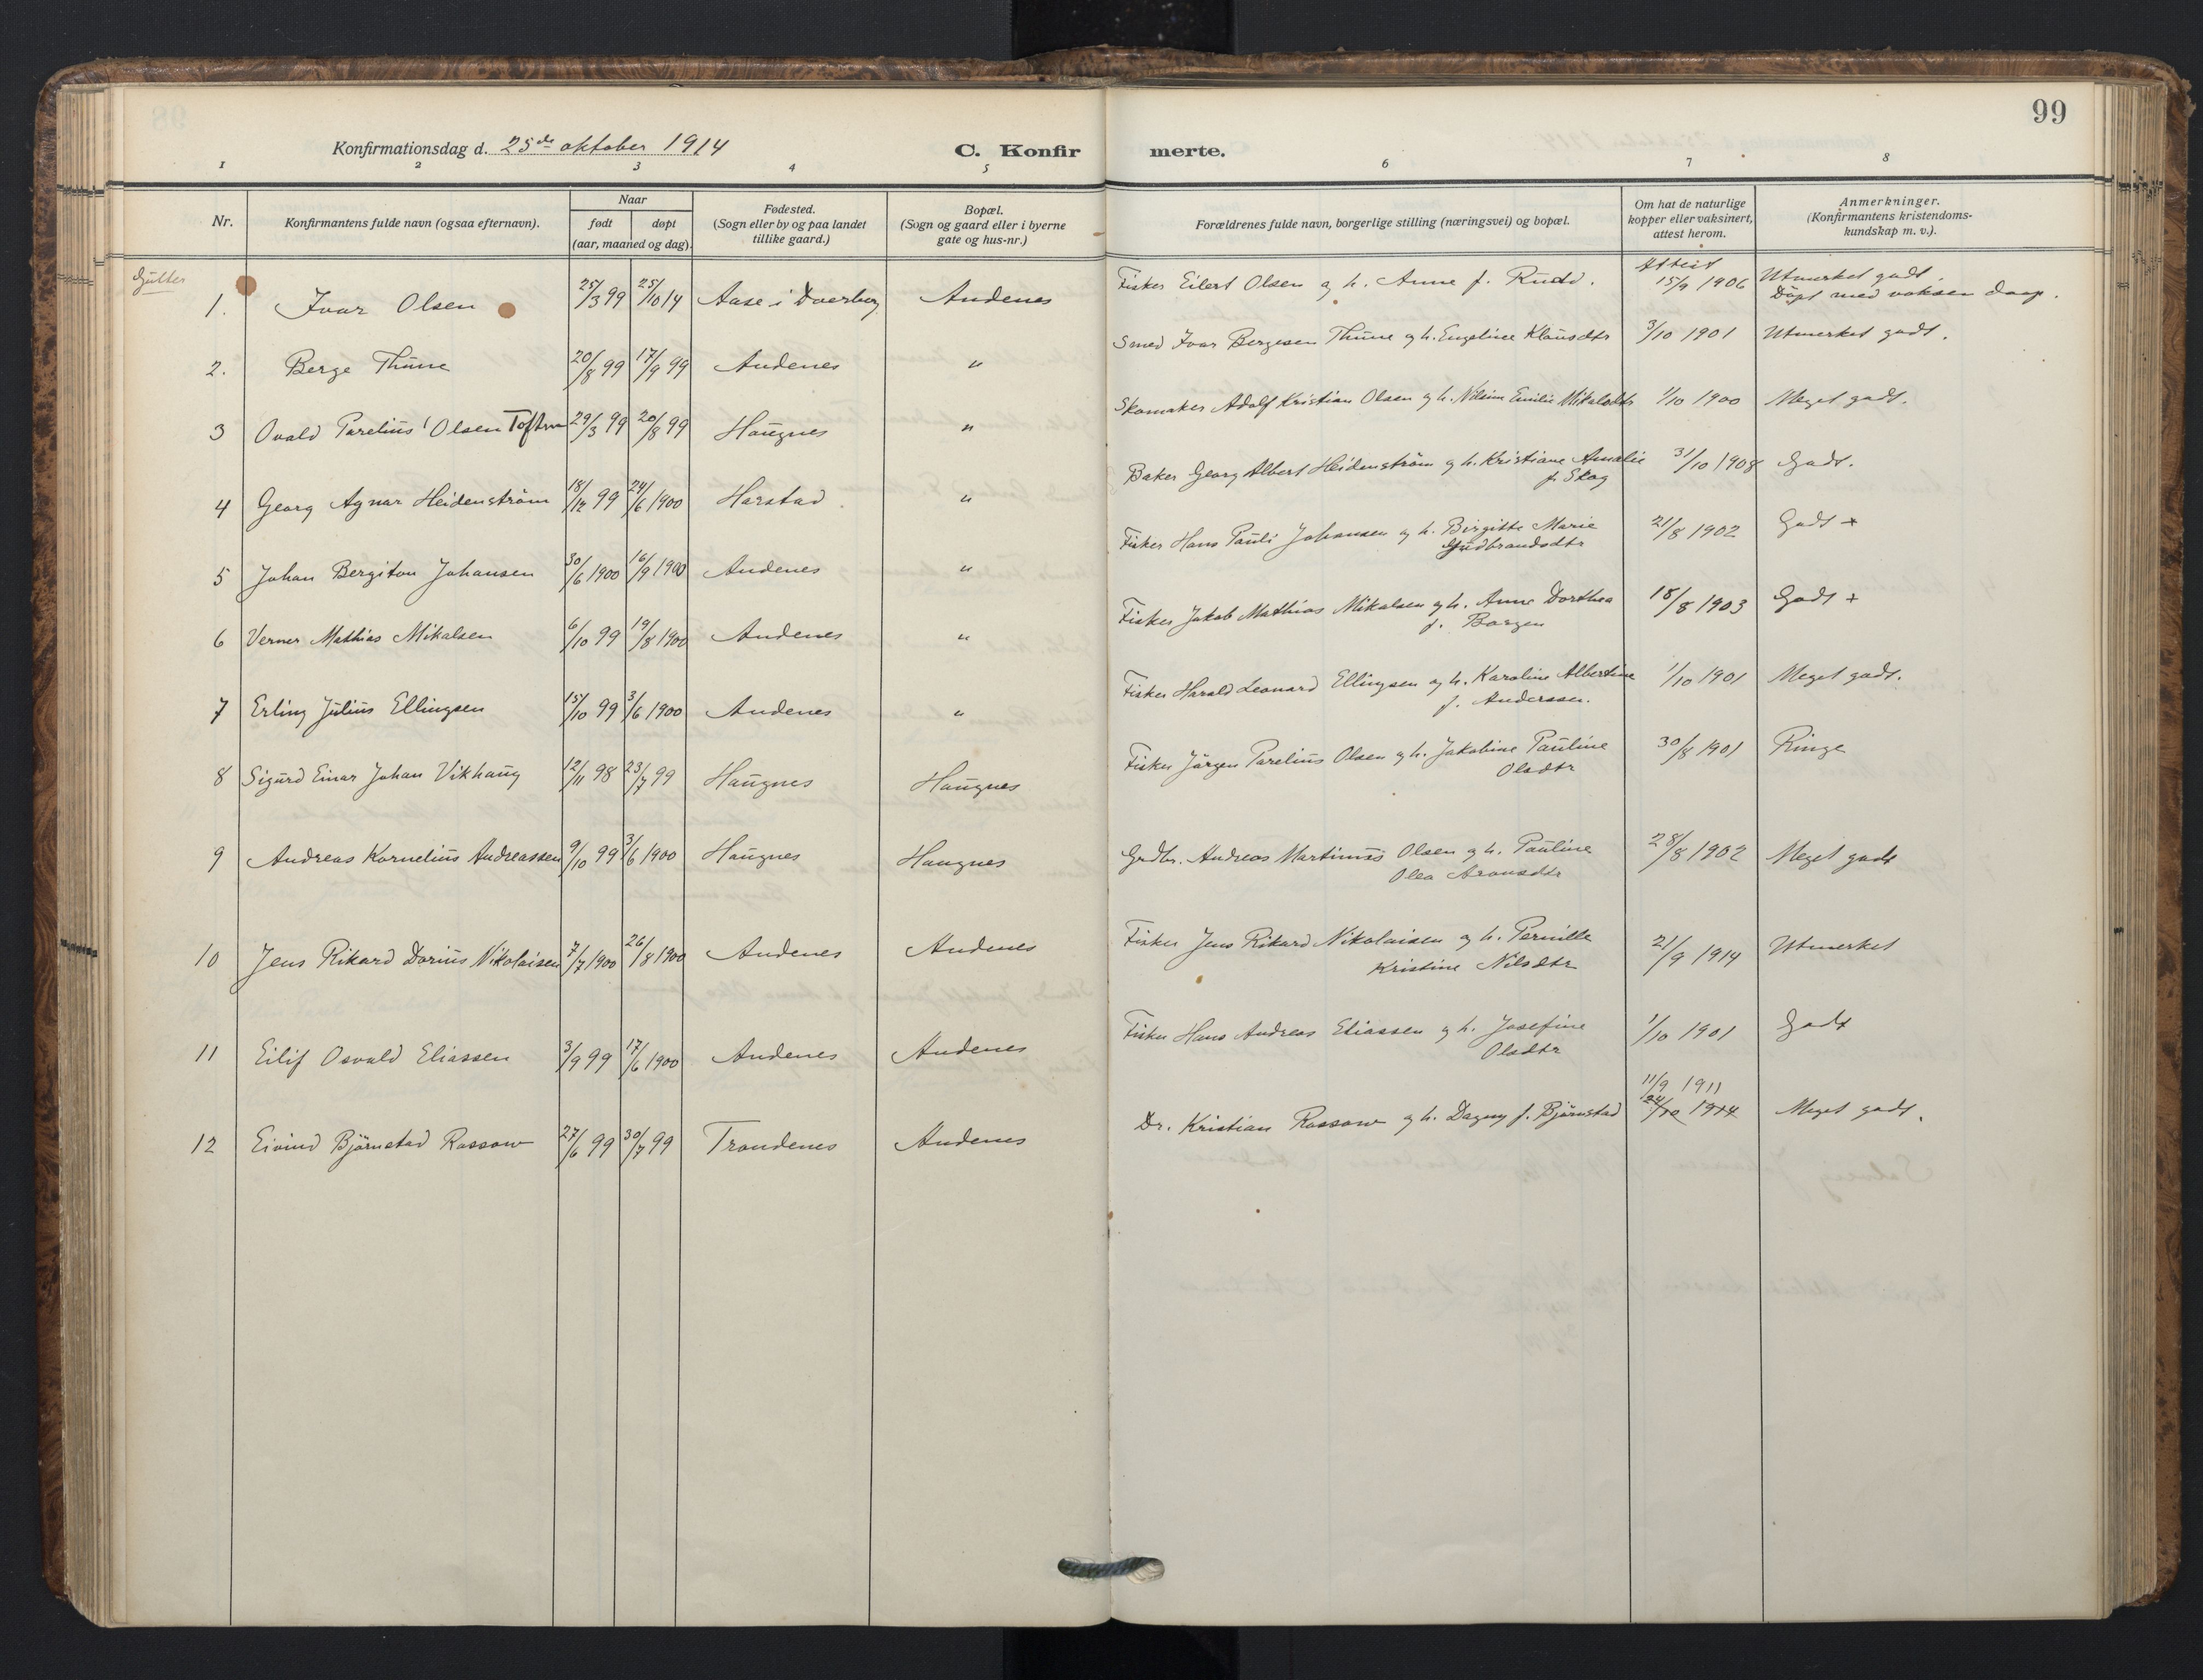 99
Konfirmationsdag d. 25de oktober 1914
C. Konfirmerte.
1 2 3 4 5 6 7 8
Nr.
Konfirmantens fulde navn (ogsaa efternavn).
Naar
født døpt
(aar, maaned og dag).
Fødested.
(Sogn eller by og paa landet
tillike gaard.)
Bopæl.
(Sogn og gaard eller i byerne
gate og hus-nr.)
Forældrenes fulde navn, borgerlige stilling (næringsvei) og bopæl.
Om hat de naturlige
kopper eller vaksinert,
attest herom.
Anmerkninger.
(Konfirmantens kristendoms-
kundskap m. v.).
Gutter
1. Ivar Olsen 25/3 99 25/10 14 Aase i Dverberg Andenes Fisker Eilert Olsen og h. Anne f. Rudd. Attest 15/9 1906 Utmerket godt.
Døpt med voksen daap.
2. Berge Thune 20/8 99 17/9 99 Andenes " Smed Ivar Bergesen Thune og h. Engeline Klausdtr 3/10 1901 Utmerket godt.
3 Ovald Parelius Olsen Toften 29/3 99 20/8 99 Haugnes " Skomaker Adolf Kristian Olsen og h. Nilsine Emilie Mikalsdtr 1/10 1900 Meget godt.
4 Georg Agnar Heidenström 18/12 99 24/6 1900 Harstad " Baker Georg Albert Heidenström og h. Kristiane Amalie
f. Skog 31/10 1908 Godt.
5 Johan Bergiton Johansen 30/6 1900 16/9 1900 Andenes " Fisker Hans Pauli Johansen og h. Birgitte Marie
Gudbrandsdtr 21/8 1902 Godt +
6 Verner Mathias Mikalsen 6/10 99 19/8 1900 Andenes " Fisker Jakob Mathias Mikalsen og h. Anne Dorthea
f. Borgen 18/8 1903 Godt +
7 Erling Julius Ellingsen 15/10 99 3/6 1900 Andenes " Fisker Harald Leonard Ellingsen og h. Karoline Albertine
f. Anderssen. 1/10 1901 Meget godt.
8 Sigurd Einar Johan Vikhaug 12/11 98 23/7 99 Haugnes Haugnes Fisker Jörgen Parelius Olsen og h. Jakobine Pauline
Olsdtr 30/8 1901 Ringe
9 Andreas Kornelius Andreassen 9/10 99 3/6 1900 Haugnes Haugnes Grdbr. Andreas Martinus Olsen og h. Pauline
Olea Aronsdtr 28/8 1902 Meget godt
10 Jens Rikard Dorius Nikolaisen 7/7 1900 26/8 1900 Andenes Andenes Fisker Jens Rikard Nikolaisen og h. Pernille
Kristine Nilsdtr 21/9 1914 Utmerket
11 Eilif Osvald Eliassen 3/9 99 17/6 1900 Andenes Andenes Fisker Hans Andreas Eliassen og h. Josefine
Olsdtr 1/10 1901 Godt
12 Eivind Björnstad Rossow 27/6 99 30/7 99 Trondenes Andenes Dr. Kristian Rossow og h. Dagny f. Björnstad 11/9 1911
24/10 1914 Meget godt.